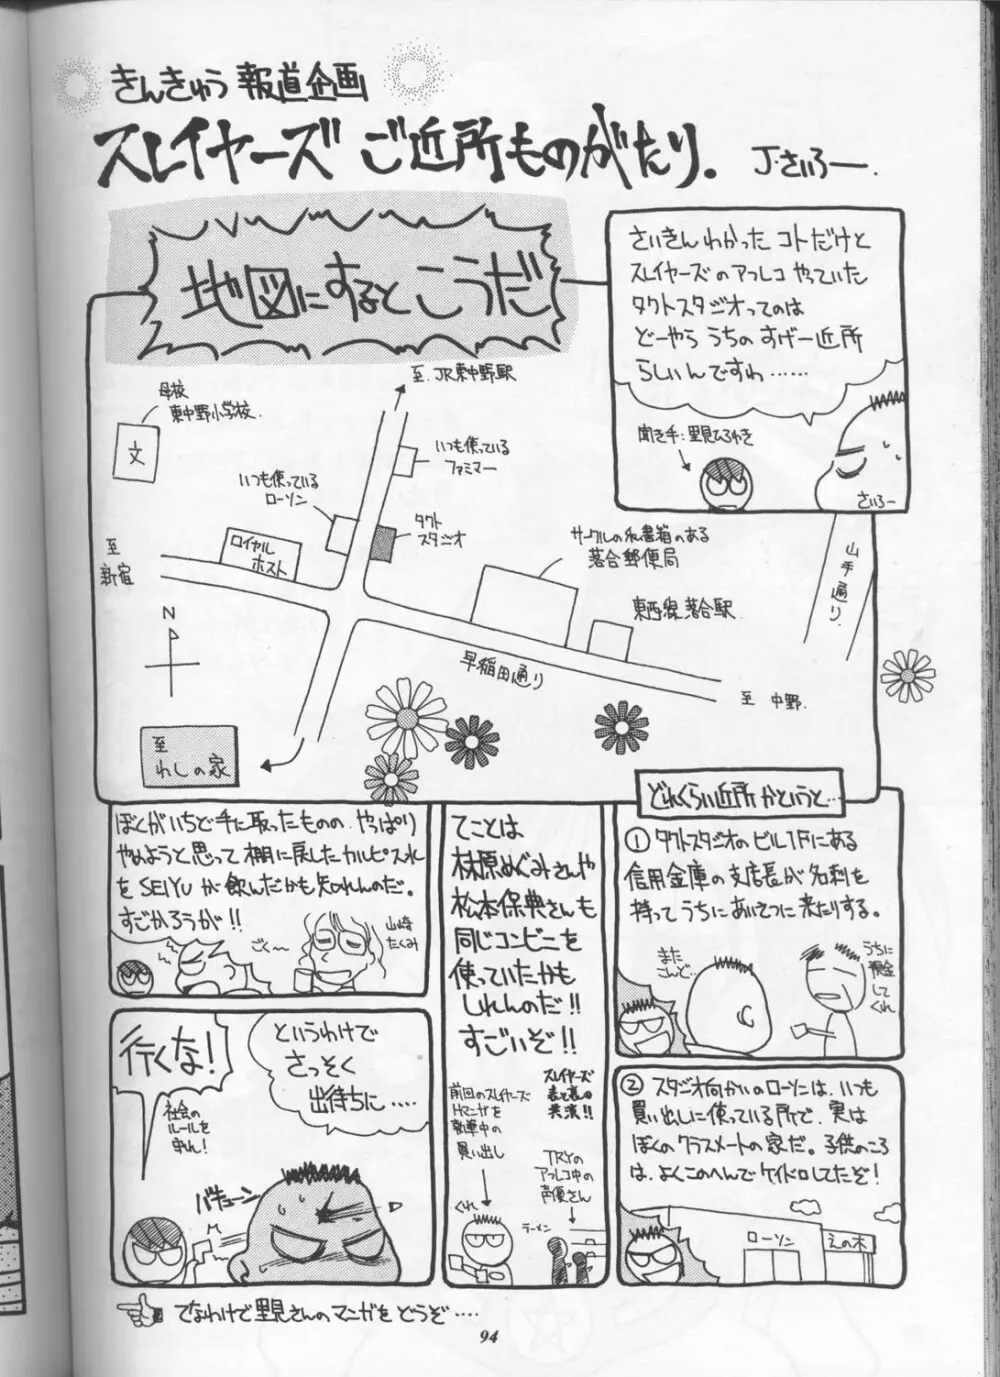 きんきゅう 報道企画
スレイヤーズ ご近所ものがたり。
J・さいろー.
さいきんわかった コトだけと
スレイヤーズのアフレコ やっていた
タクトスタジオってのは
どーやら うちの すげー近所
らしいんですわ……
聞き手:里見ひろゆき
さいろー
地図にするとこうだ
至.JR東中野駅
母校
東中野小学校.
文
いつも使っている
ファミマー
いつも使っている
ローソン
タクト
スタジオ
ロイヤル
ホスト
至
新宿
N
サークルの私書箱のある
落合郵便局
東西線落合駅.
山手通り.
早稲田通り
至 中野.
至
わしの家
どれくらい近所かというと…
① タクトスタジオのビル1Fにある
信用金庫の支店長が名刺を
持ってうちにあいさつに来たりする。
また
こんど…
うちに
預金
してくれ
② スタジオ向かいのローソンは、いつも
買い出しに使っている所で、実は
ぼくのクラスメートの家だ。子供のころ
は、よくこのへんでケイドロしてたぞ!
ローソン
えの木
てことは
林原めぐみさんや
松本保典さんも
同じコンビニを
使っていたかも
しれんのだ!!
すごいぞ!!
スレイヤーズ
表と裏の
共演!!
前回のスレイヤーズ
Hマンガを
執筆中の
買い出し
TRYの
アフレコ中の
声優さん
くれ
ラーメン
ぼとがいちど手に取ったものの、やっぱり
やめようと思って棚に戻したカルピス水
をSEIYUが飲んだかも知れんのだ。
すごかろうが!!
ごく〜
山崎
たくみ
というわけで
さっそく
出待ちに....
行くな!
社会の
ルールを
守れ!
バキューン
てなわけで里見さんのマンガをどうぞ....
94